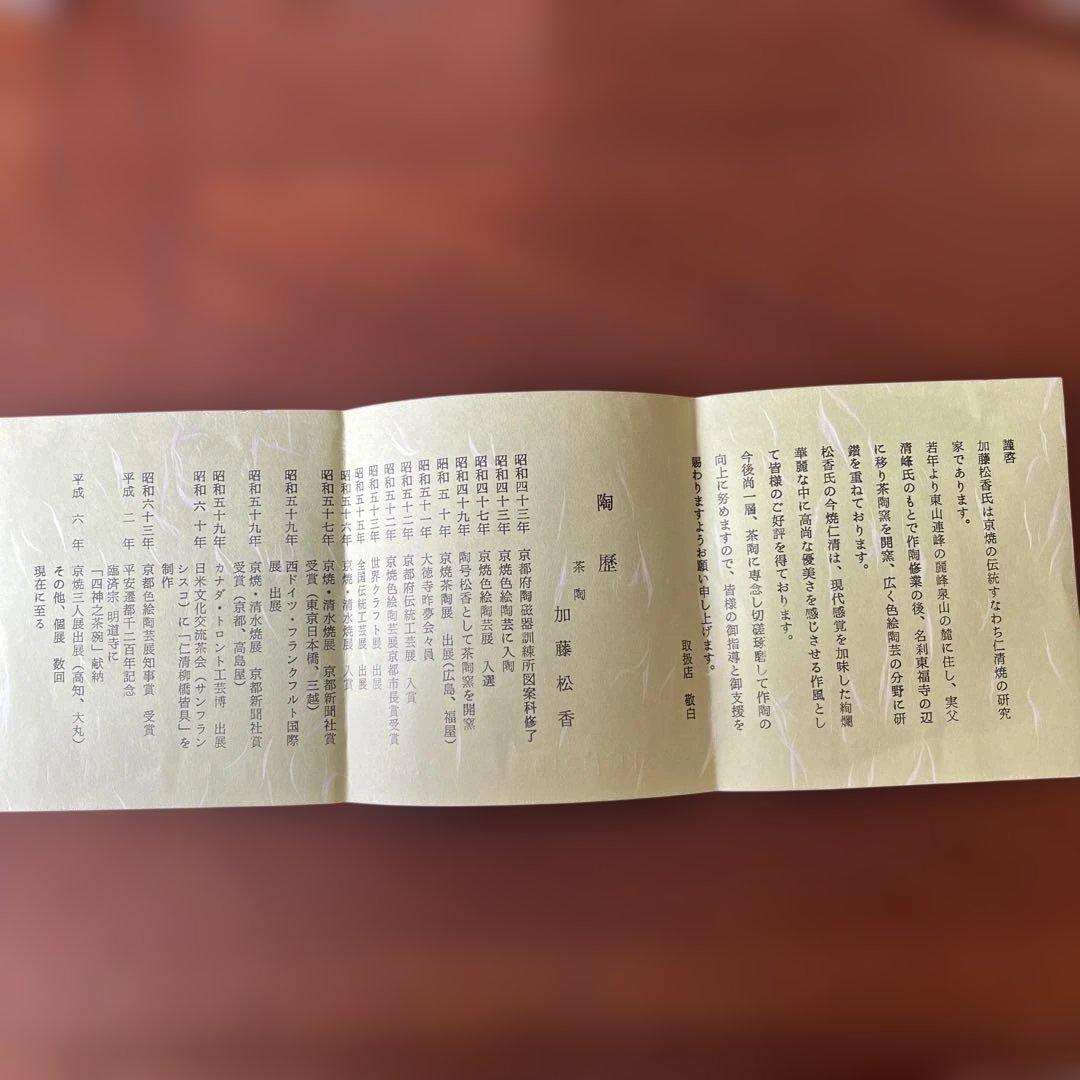 謹啓
加藤松香氏は京焼の伝統すなわち仁清焼の研究
家であります。
若年より東山連峰の麗峰泉山の麓に住し、実父
清峰氏のもとで作陶修業の後、名刹東福寺の辺
に移り茶陶窯を開窯、広く色絵陶芸の分野に研
鑽を重ねております。
松香氏の今焼仁清は、現代感覚を加味した絢爛
華麗な中に高尚な優美さを感じさせる作風とし
て皆様のご好評を得ております。
今後尚一層、茶陶に専念し切磋琢磨して作陶の
向上に努めますので、皆様の御指導と御支援を
賜わりますようお願い申し上げます。
取扱店 敬白
陶歴
茶陶 加藤松香
昭和四十三年 京都府陶磁器訓練所図案科修了
昭和四十三年 京焼色絵陶芸に入陶
昭和四十七年 京焼色絵陶芸展 入選
昭和四十九年 陶号松香として茶陶窯を開窯
昭和五十年 京焼茶陶展 出展(広島、福屋)
昭和五十一年 大徳寺昨夢会々員
昭和五十二年 京都府伝統工芸展 入賞
昭和五十二年 京焼色絵陶芸展京都市長賞受賞
昭和五十三年 世界クラフト展 出展
昭和五十五年 全国伝統工芸展 出展
昭和五十六年 京焼・清水焼展 入賞
昭和五十七年 京焼・清水焼展 京都新聞社賞
受賞(東京日本橋、三越)
昭和五十九年 西ドイツ・フランクフルト国際
展 出展
昭和五十九年 京焼・清水焼展 京都新聞社賞
受賞(京都、高島屋)
昭和五十九年 カナダ・トロント工芸博 出展
昭和六十年 日米文化交流茶会(サンフラン
シスコ)に「仁清柳橋皆具」を
制作
昭和六十三年 京都色絵陶芸展知事賞 受賞
平成二年 平安遷都千二百年記念
臨済宗 明道寺に
「四神之茶碗」献納
平成六年 京焼三人展出展(高知、大丸)
その他、個展 数回
現在に至る